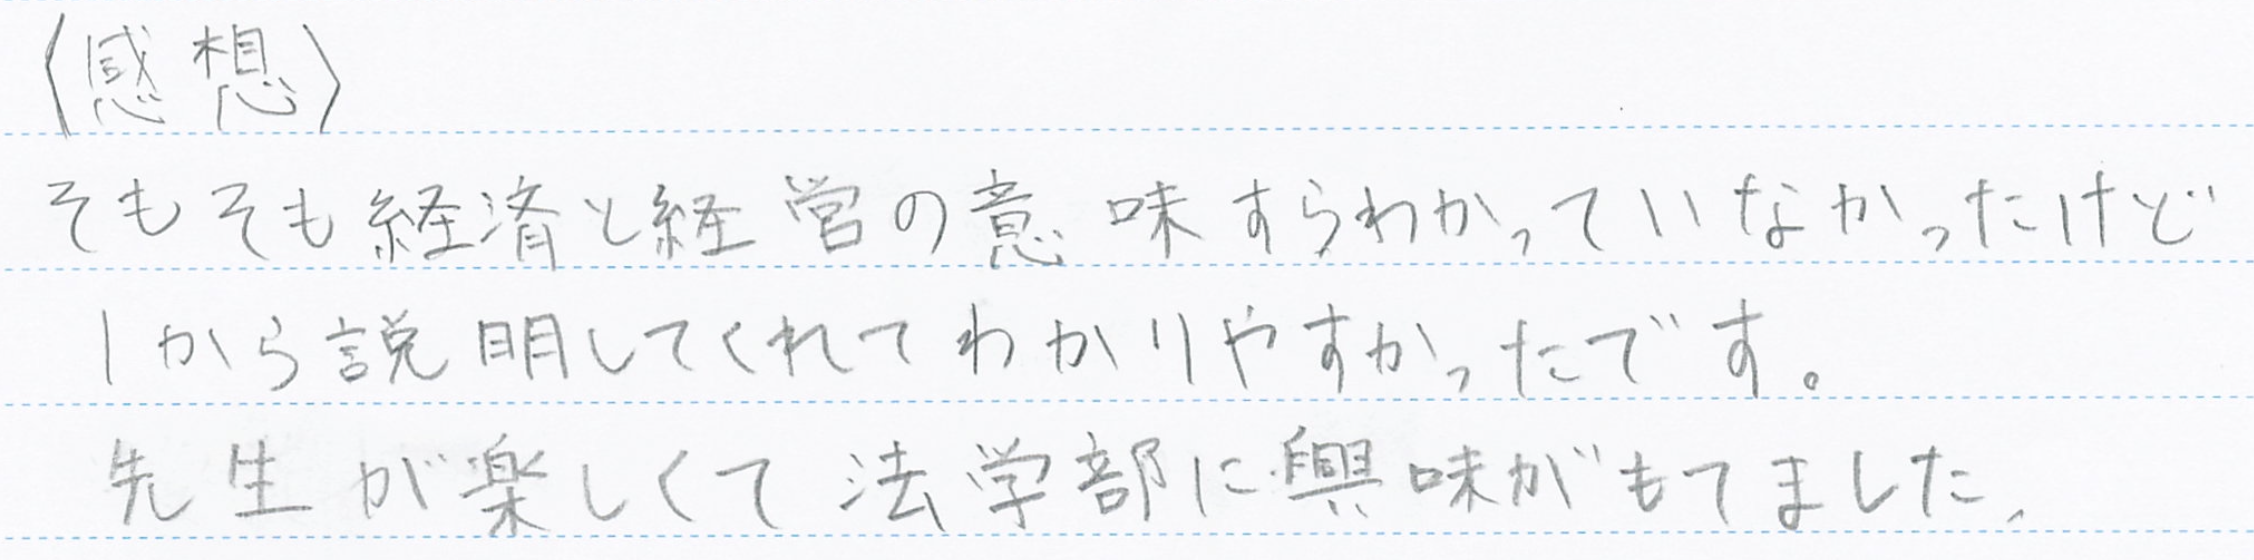 〈感想〉
そもそも経済と経営の意味すらわかっていなかったけど
1から説明してくれてわかりやすかったです。
先生が楽しくて法学部に興味がもてました、